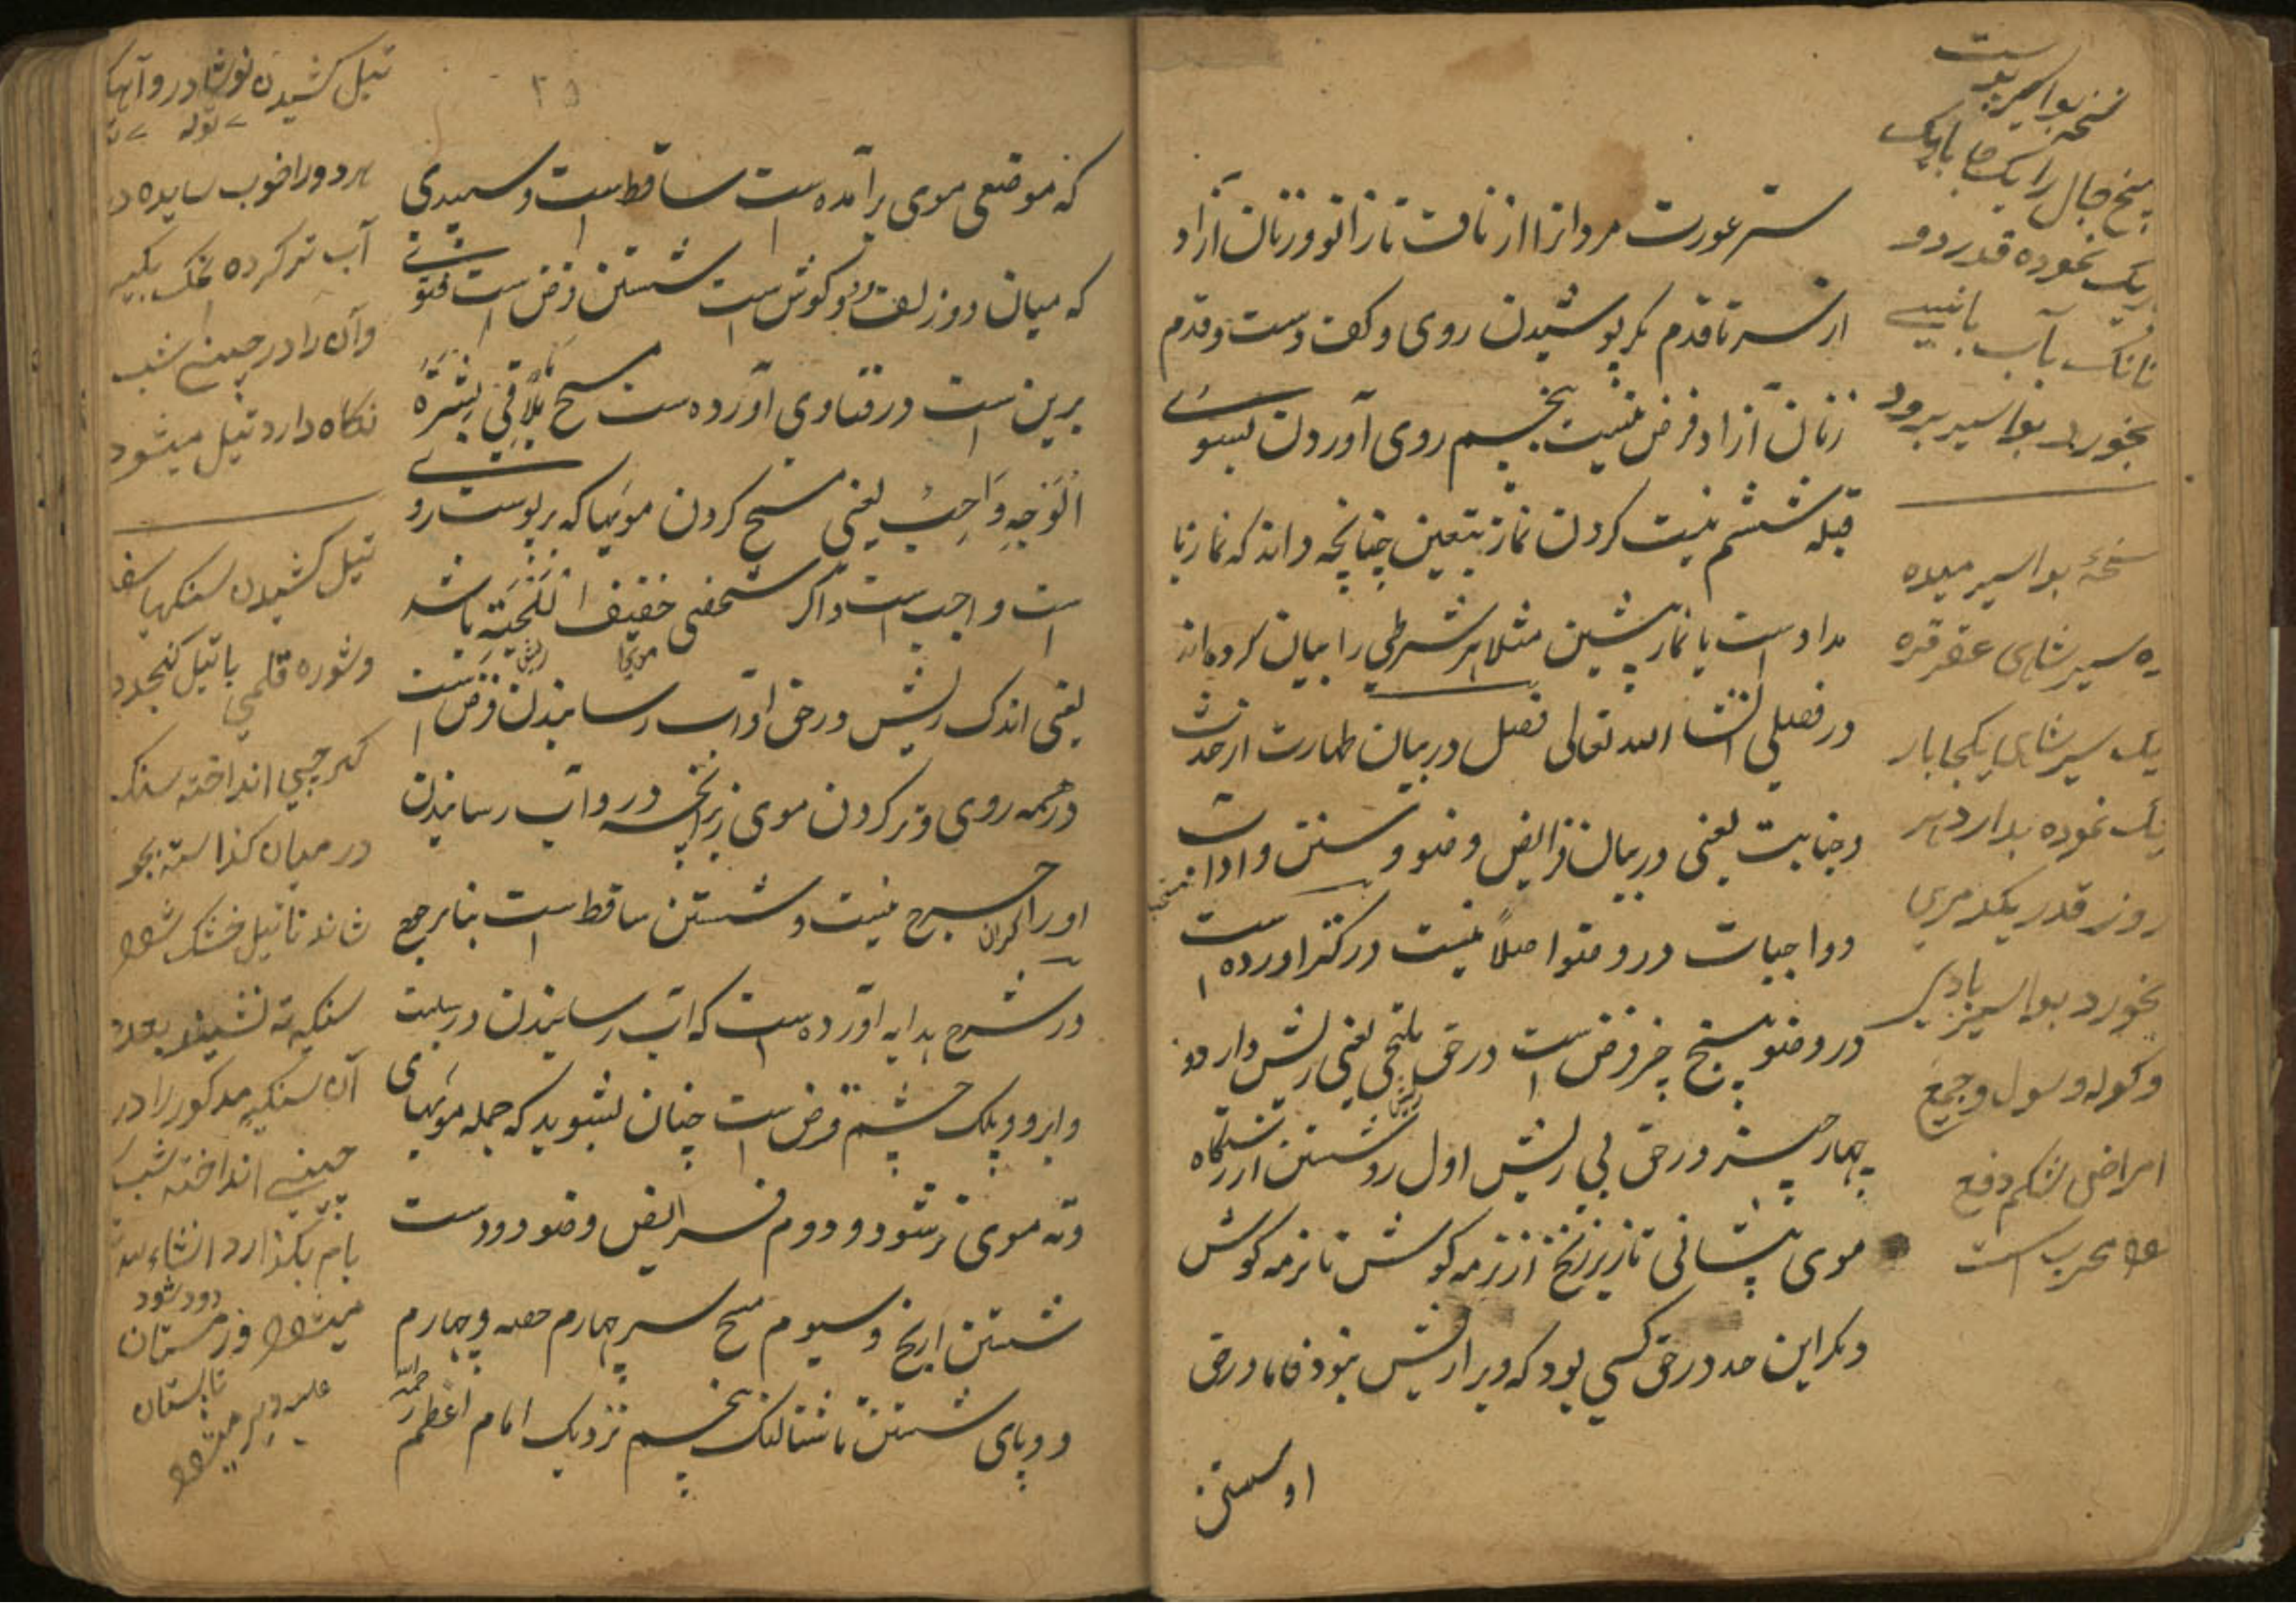 ستر عورت مردانرا از ناف تا زانو و زنان آزاد
از سر تا قدم مگر پوشیدن روی و کف دست و قدم
زنان آزاد فرض نیست پنجم روی آوردن بسوے
قبله ششم نیت کردن نماز بتعین چنانچه داند که نماز با
مدادست یا نماز پیشین مثلا هر شرطی را بیان کرده اند
در فصلی انشا الله تعالی فصل در بیان طهارت از حدث
و جنابت یعنی در بیان فرایض وضو و سنن و اداب
و واجبات در وضو اصلاً نیست در کنز اورده است
در وضو پنج چیز فرض است در حق ملتحی یعنی ریش دار و
چهار چیز در حق بی ریش اول رو شستن از رستنگاه
موی پیشانی تا زیر زنخ از نرمه کوش تا نرمه کوش
دیگر این حد در حق کسی بود که ویرا ریش نبود فاما در حق
او شستن
نسخه بواسیر
بیخ جال را یک جا باریک
نموده قدر دو
تانک بآب
بخورد بواسیر برود
نسخهٔ بواسیر میده
سیر شاهی عقرقره
یک سیر شاهی یکجا بار
یک نموده بدارد هر
روز قدر یکدمری
بخورد بواسیر بادی
و کوله و سول و جمیع
امراض شکم دفع
شود مجرب است
۲۵
که موضعی موی برآمده ست ساقط است و سپیدی
که میان دو زلف و کوش است شستن فرض است فتوی
برین است در فتاوی آورده ست مسح یُلَاقِی بَشَرَةَ
اَلْوَجْهِ وَاجِبٌ یعنی مسح کردن مویها که بر پوست رو
است واجب است و اگر شخصی خفیف اللّحیَتِه باشد
یعنی اندک ریش در حق او آب رسانیدن فرض است
در همه روی و تر کردن موی زیرانچه در رو آب رسانیدن
او را حرج نیست و شستن ساقط است بنا بر حرج
در شرح هدایه آورده ست که آب رسانیدن در سبلت
و ابرو و پلک چشم فرض است چنان بشوید که جمله مویهای
و ته موی تر شود و دوم فرایض وضو دو دست
شستن ارنج و سیوم مسح سر چهارم حصه و چهارم
دو پای شستن تا شتالنک پنجم نزدیک امام اعظم رحمه الله
تیل کشیدن نوشادر و آهک
هر دو را خوب سایده در
آب تر کرده نمک بگیر
و آن را در چینی شب
نگاه دارد تیل میشود
تیل کشیدن سنکهیا سفید
و شوره قلمی با تیل کنجد در
انداخته سنک
در میان کذاشته بجو
شاند تا تیل خشک شود
سنکیه ته نشیند بعده
آن سنکیه مذکور را در
چینی انداخته شب
بام بگذارد انشاءالله
میشود در زمستان
زود شود
تابستان
دیر میشود